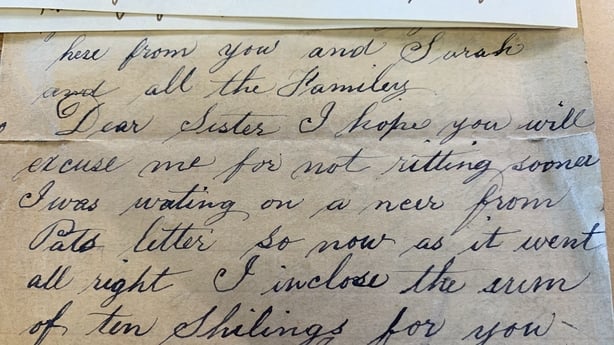 here from you and Sarah
and all the Familey
Dear Sister I hope you will
excuse me for not ritting sooner
I was wating on a ncer from
Pats letter so now as it went
all right I inclose the sum
of ten Shilings for you